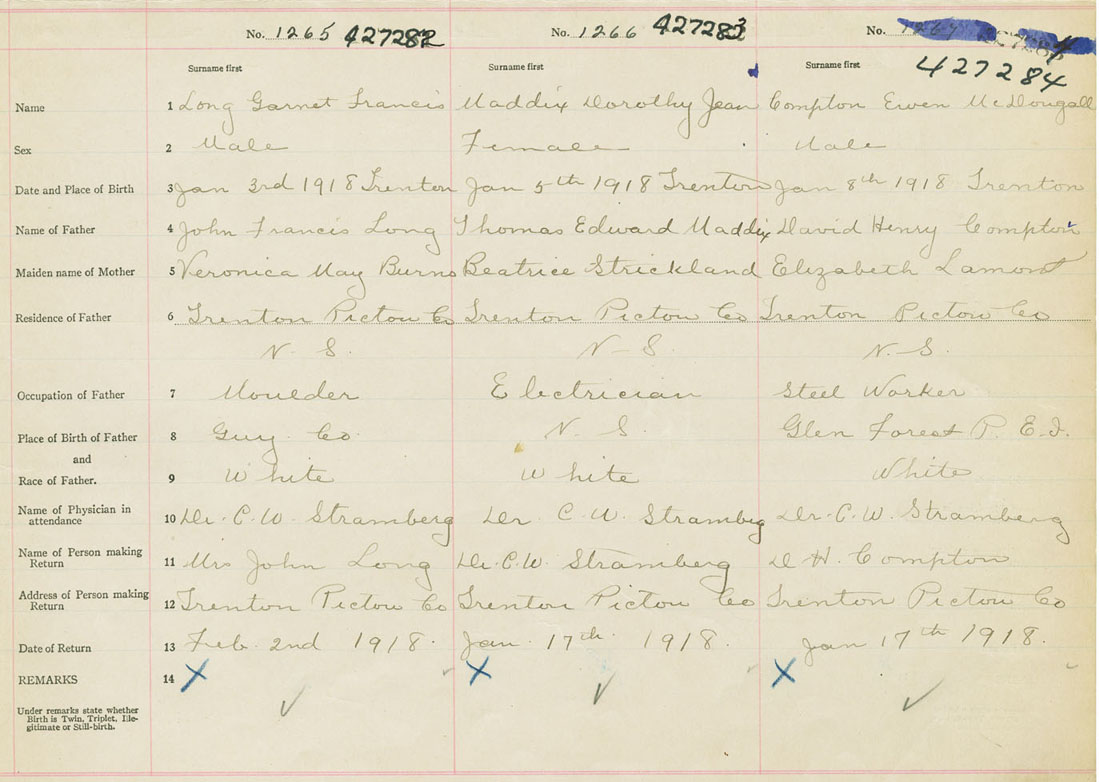 No. 1265 427282 No. 1266 427283 No. 427284
Surname first Surname first Surname first
Name 1 Long Garnet Francis Maddix Dorothy Jean Compton Ewen McDougall
Sex 2 Male Female Male
Date and Place of Birth 3 Jan 3rd 1918 Trenton Jan 5th 1918 Trenton Jan 8th 1918 Trenton
Name of Father 4 John Francis Long Thomas Edward Maddix David Henry Compton
Maiden name of Mother 5 Veronica May Burns Beatrice Strickland Elizabeth Lamont
Residence of Father 6 Trenton Pictou Co Trenton Pictou Co Trenton Pictou Co
N. S. N S. N. S.
Occupation of Father 7 Moulder Electrician Steel Worker
Place of Birth of Father 8 Guy. Co. N. S. Glen Forest P. E. I.
and
Race of Father. 9 White White White
Name of Physician in
attendance 10 Dr. C. W. Stramberg Dr C. W. Stramberg Dr. C. W. Stramberg
Name of Person making
Return 11 Mrs John Long Dr. C. W. Stramberg D H. Compton
Address of Person making
Return 12 Trenton Pictou Co Trenton Pictou Co Trenton Pictou Co
Date of Return 13 Feb. 2nd 1918. Jan. 17th 1918. Jan 17th 1918.
REMARKS 14 X X X
Under remarks state whether
Birth is Twin, Triplet, Ille-
gitimate or Still-birth.